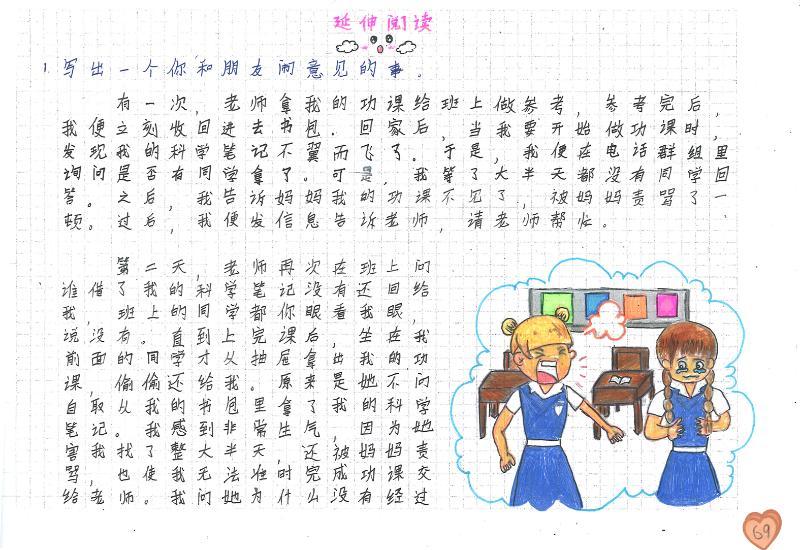 延伸阅读
1. 写出一个你和朋友闹意见的事。
有一次，老师拿我的功课给班上做参考，参考完后，
我便立刻收回进去书包．回家后，当我要开始做功课时，
发现我的科学笔记不翼而飞了。于是，我便在电话群组里
询问是否有同学拿了。可是，我等了大半天都没有同学回
答。之后，我告诉妈妈我的功课不见了，被妈妈责骂了一
顿。过后，我便发信息告诉老师，请老师帮忙。
第二天，老师再次在班上问
谁借了我的科学笔记没有还回给
我，班上的同学都你眼看我眼，
说没有。直到上完课后，坐在我
前面的同学才从抽屉拿出我的功
课，偷偷还给我。原来是她不问
自取从我的书包里拿了我的科学
笔记。我感到非常生气，因为她
害我找了整大半天，还被妈妈责
骂，也使我无法准时完成功课交
给老师。我问她为什么没有经过
69